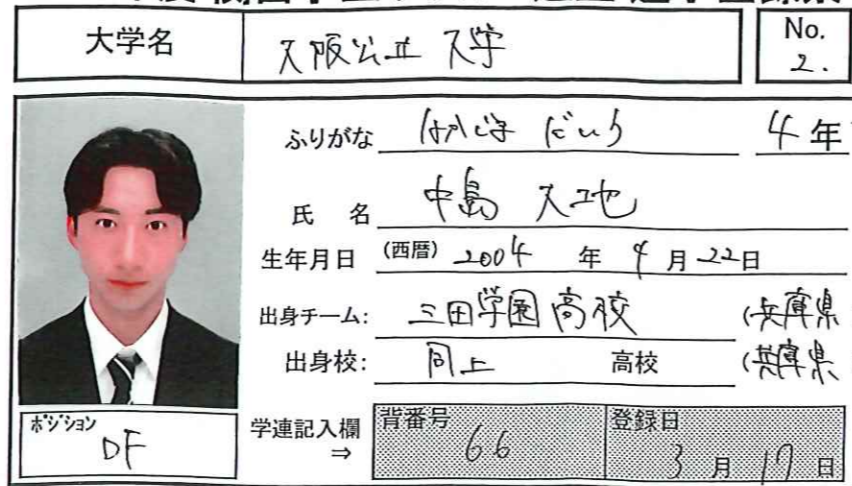 大学名 大阪公立大学 No. 2.
ふりがな なかじま だいち 4年
氏名 中島 大地
生年月日 (西暦) 2004 年 4 月 22日
出身チーム: 三田学園高校 (兵庫県
出身校: 同上 高校 (兵庫県
ポジション DF
学連記入欄 ⇒ 背番号 66 登録日 3 月 17 日